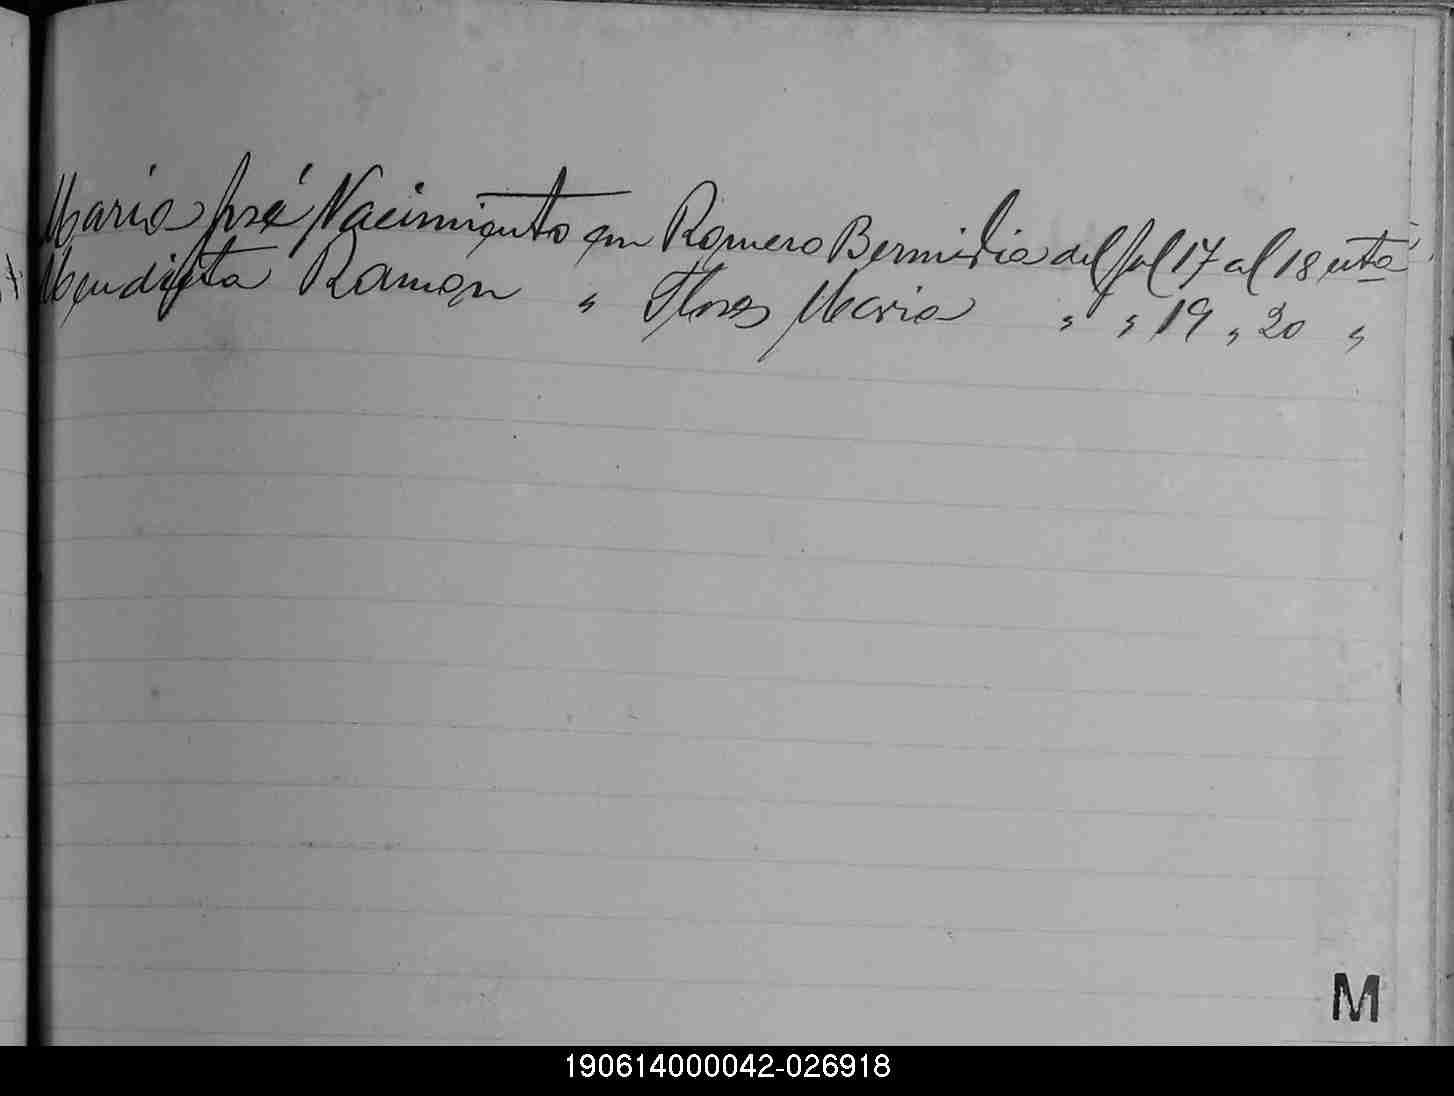 Maria José Nacimiento con Romero Bermidia del fol 17 al 18 vta
Mendieta Ramon " Flores Maria " " 19 " 20 "
M
190614000042-026918